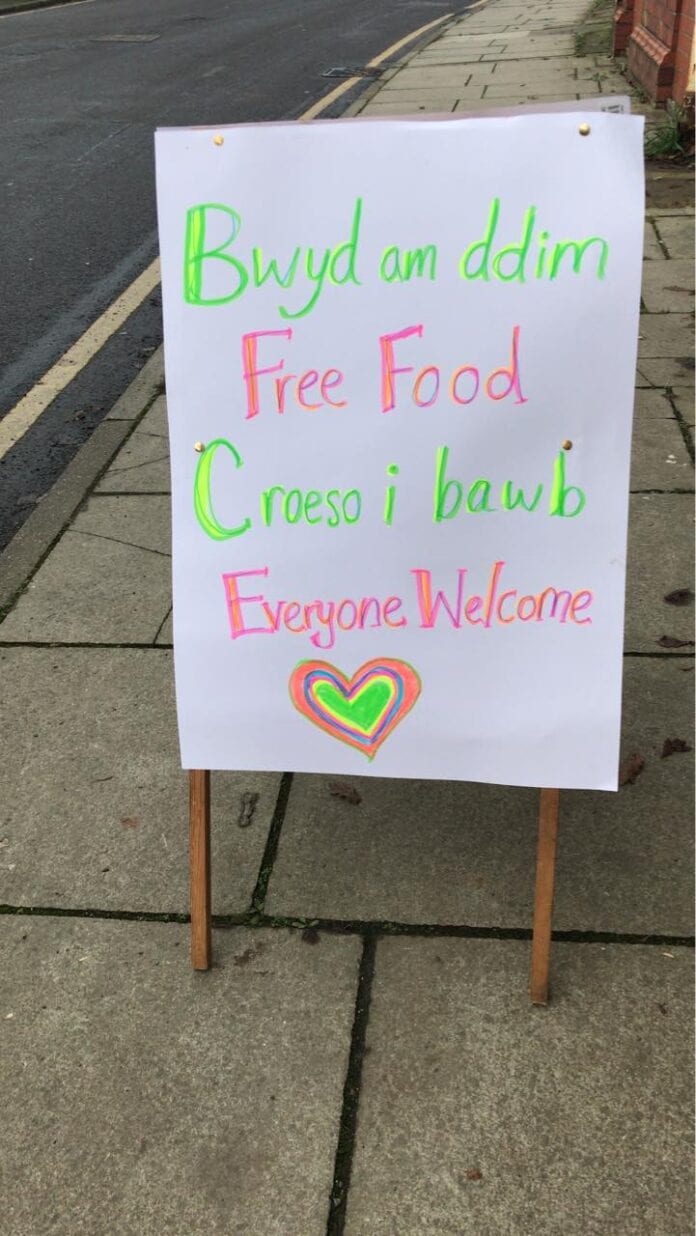 Bwyd am ddim
Free Food
Croeso i bawb
Everyone Welcome